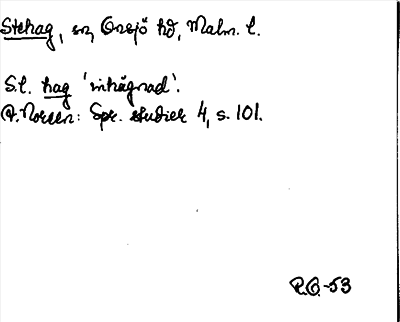 Stehag, sn, Onsjö hd, Malm. l.
S.l. hag 'inhägnad'.
A. Noreen: Spr. studier 4, s. 101.
R.O. -53